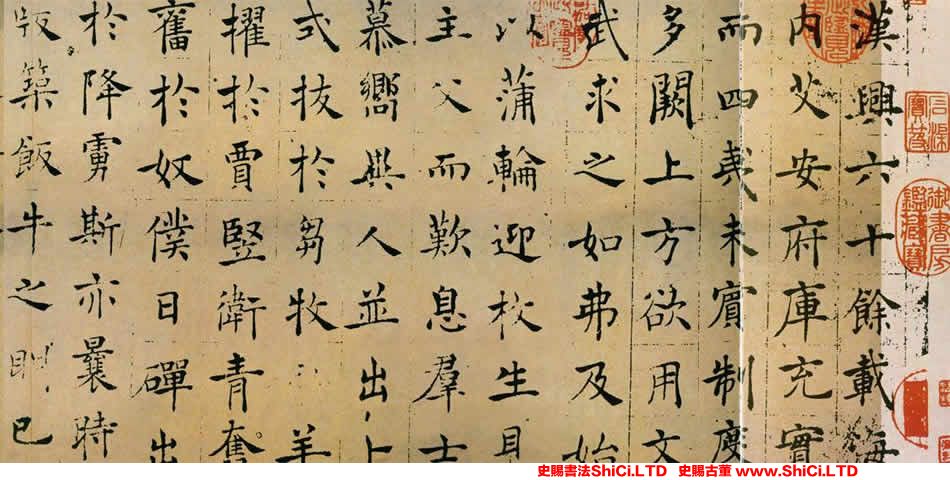 漢興六十餘載海
内艾安府庫充實
而四夷未賓制度
多闕上方欲用文
武求之如弗及始
以蒲輪迎枚生見
主父而歎息羣士
慕嚮異人並出卜
式拔於芻牧羊
擢於賈豎衛青奮
舊於奴僕日磾出
於降虜斯亦曩時
版築飯牛之朋已
石渠寶笈
御書房鑑藏寶
史賜書法ShiCi.LTD 史賜古董 www.ShiCi.LTD